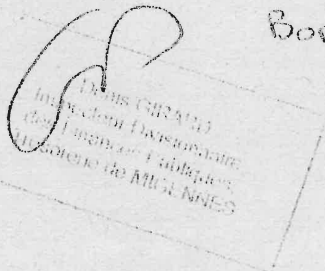 Bor
Denis GIRAUD
Inspecteur Divisionnaire
des Finances Publiques,
Trésorerie de MIGENNES